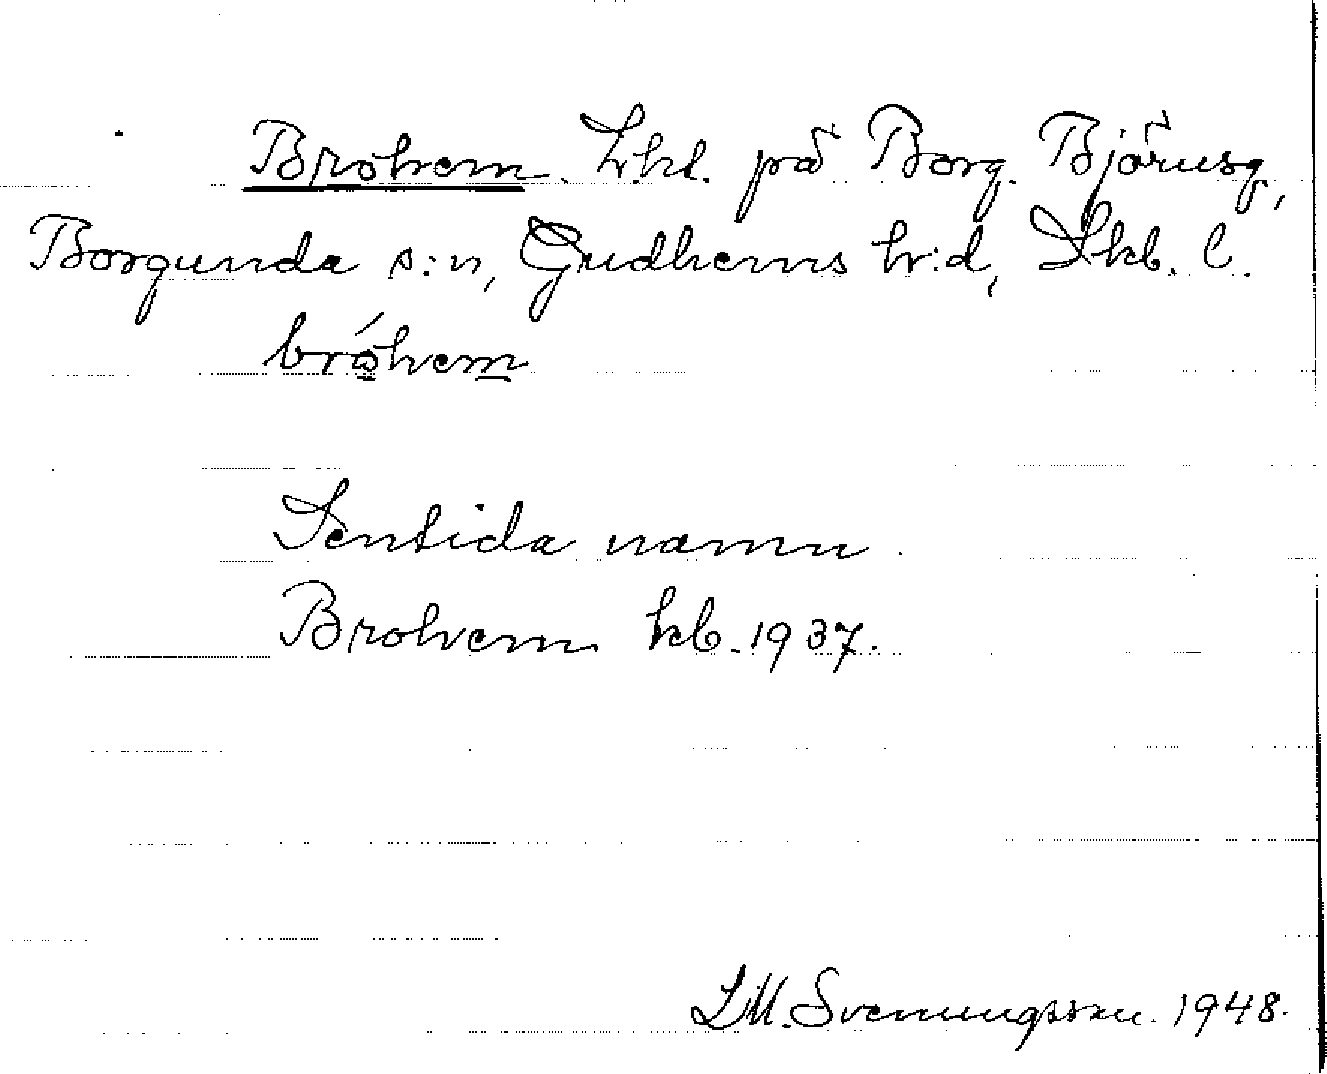 Brohem. Lht. på Borg. Björusg,
Borgunda s:n, Gudhems hr:d, Skb. l.
bróhem
Sentida namn.
Brohem kb. 1937.
LM. Svenungsson. 1948.